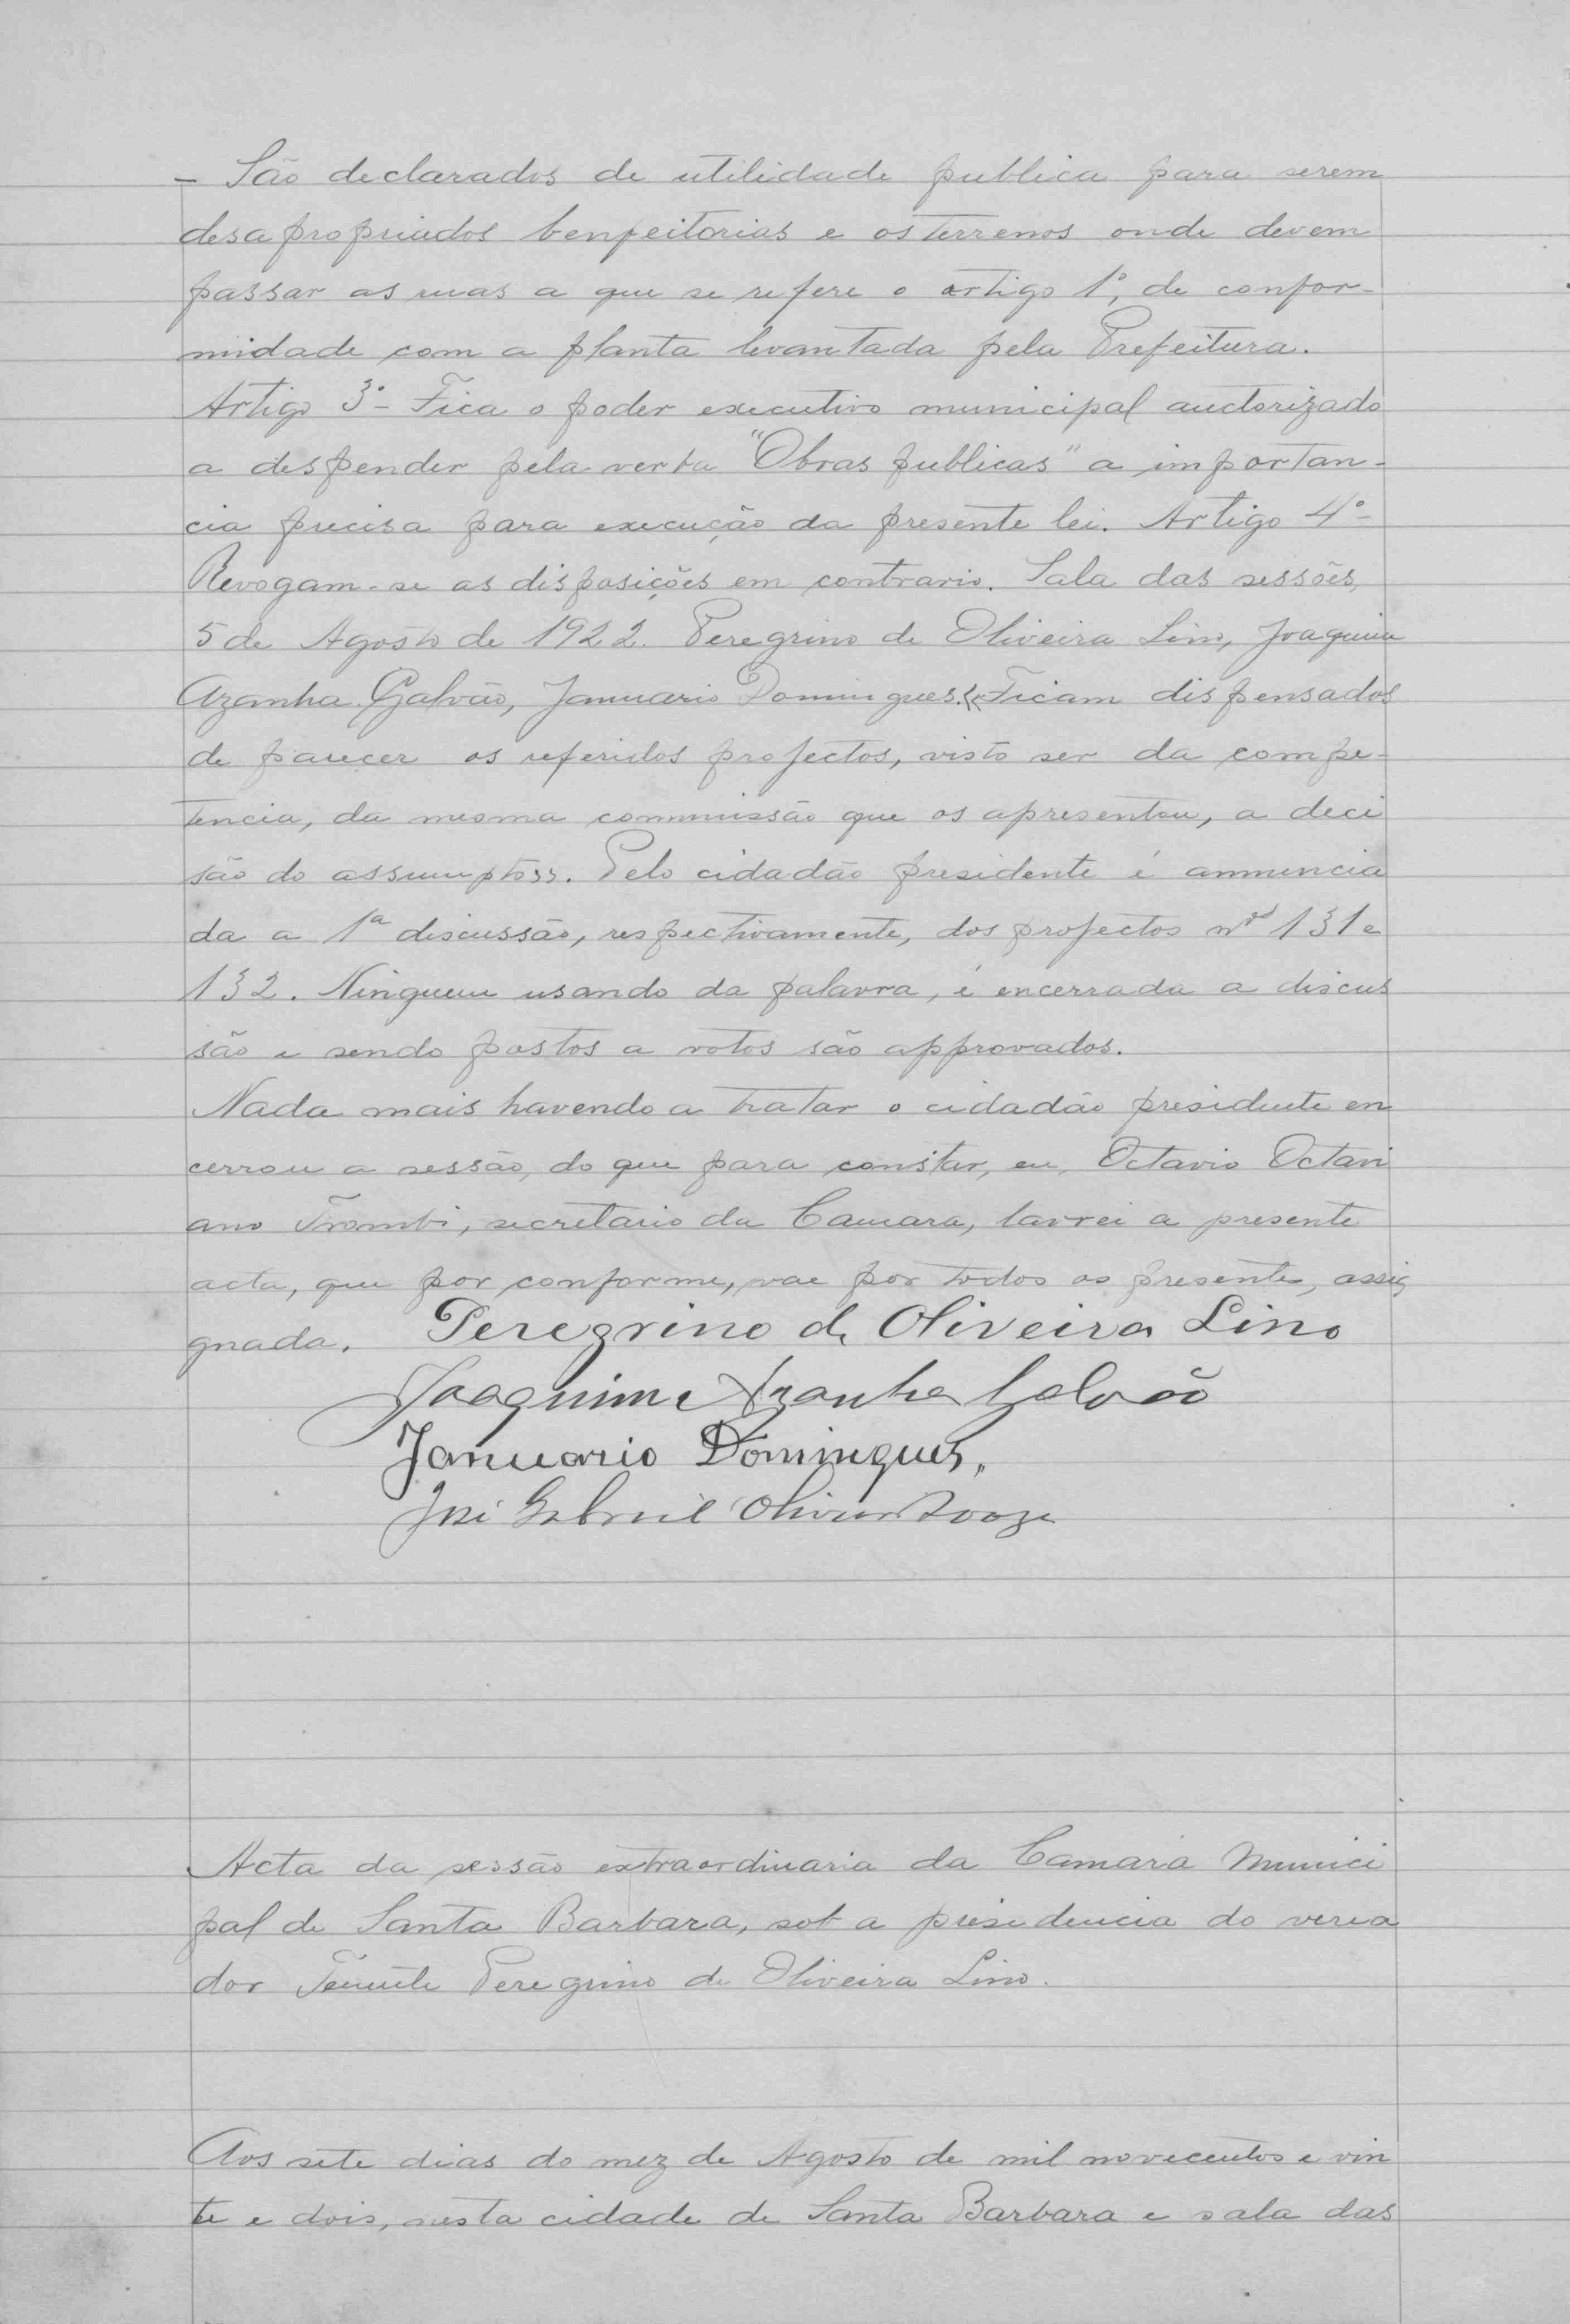 - São declarados de utilidade publica para serem
desapropriados benfeitorias e os terrenos onde devem
passar as ruas a que se refere o artigo 1º, de confor-
midade com a planta levantada pela Prefeitura.
Artigo 3º - Fica o poder executivo municipal auctorizado
a despender pela verba "Obras publicas" a importan-
cia precisa para execução da presente lei. Artigo 4º -
Revogam-se as disposições em contrario. Sala das sessões,
5 de Agosto de 1922. Peregrino de Oliveira Lino, Joaquim
Azanha Galvão, Januario Domingues. «Ficam dispensados
de parecer os referidos projectos, visto ser da compe-
tencia, da mesma commissão que os apresentou, a deci
são do assumpto». Pelo cidadão presidente é annuncia
da a 1ª discussão, respectivamente, dos projectos nos 131 e
132. Ninguem usando da palavra, é encerrada a discus
são e sendo postos a votos são approvados.
Nada mais havendo a tratar o cidadão presidente en
cerrou a sessão, do que para constar, eu, Octavio Octavi
ano Trombi, secretario da Camara, lavrei a presente
acta, que por conforme, vae por todos os presentes, assig
gnada. Peregrino de Oliveira Lino
Joaquim Azanha Galvão
Januario Domingues,
José Gabriel Oliveira
Acta da sessão extraordinaria da Camara Munici
pal de Santa Barbara, sob a presidencia do verea
dor Tenente Peregrino de Oliveira Lino.
Aos sete dias do mez de Agosto de mil novecentos e vin
te e dois, nesta cidade de Santa Barbara e sala das